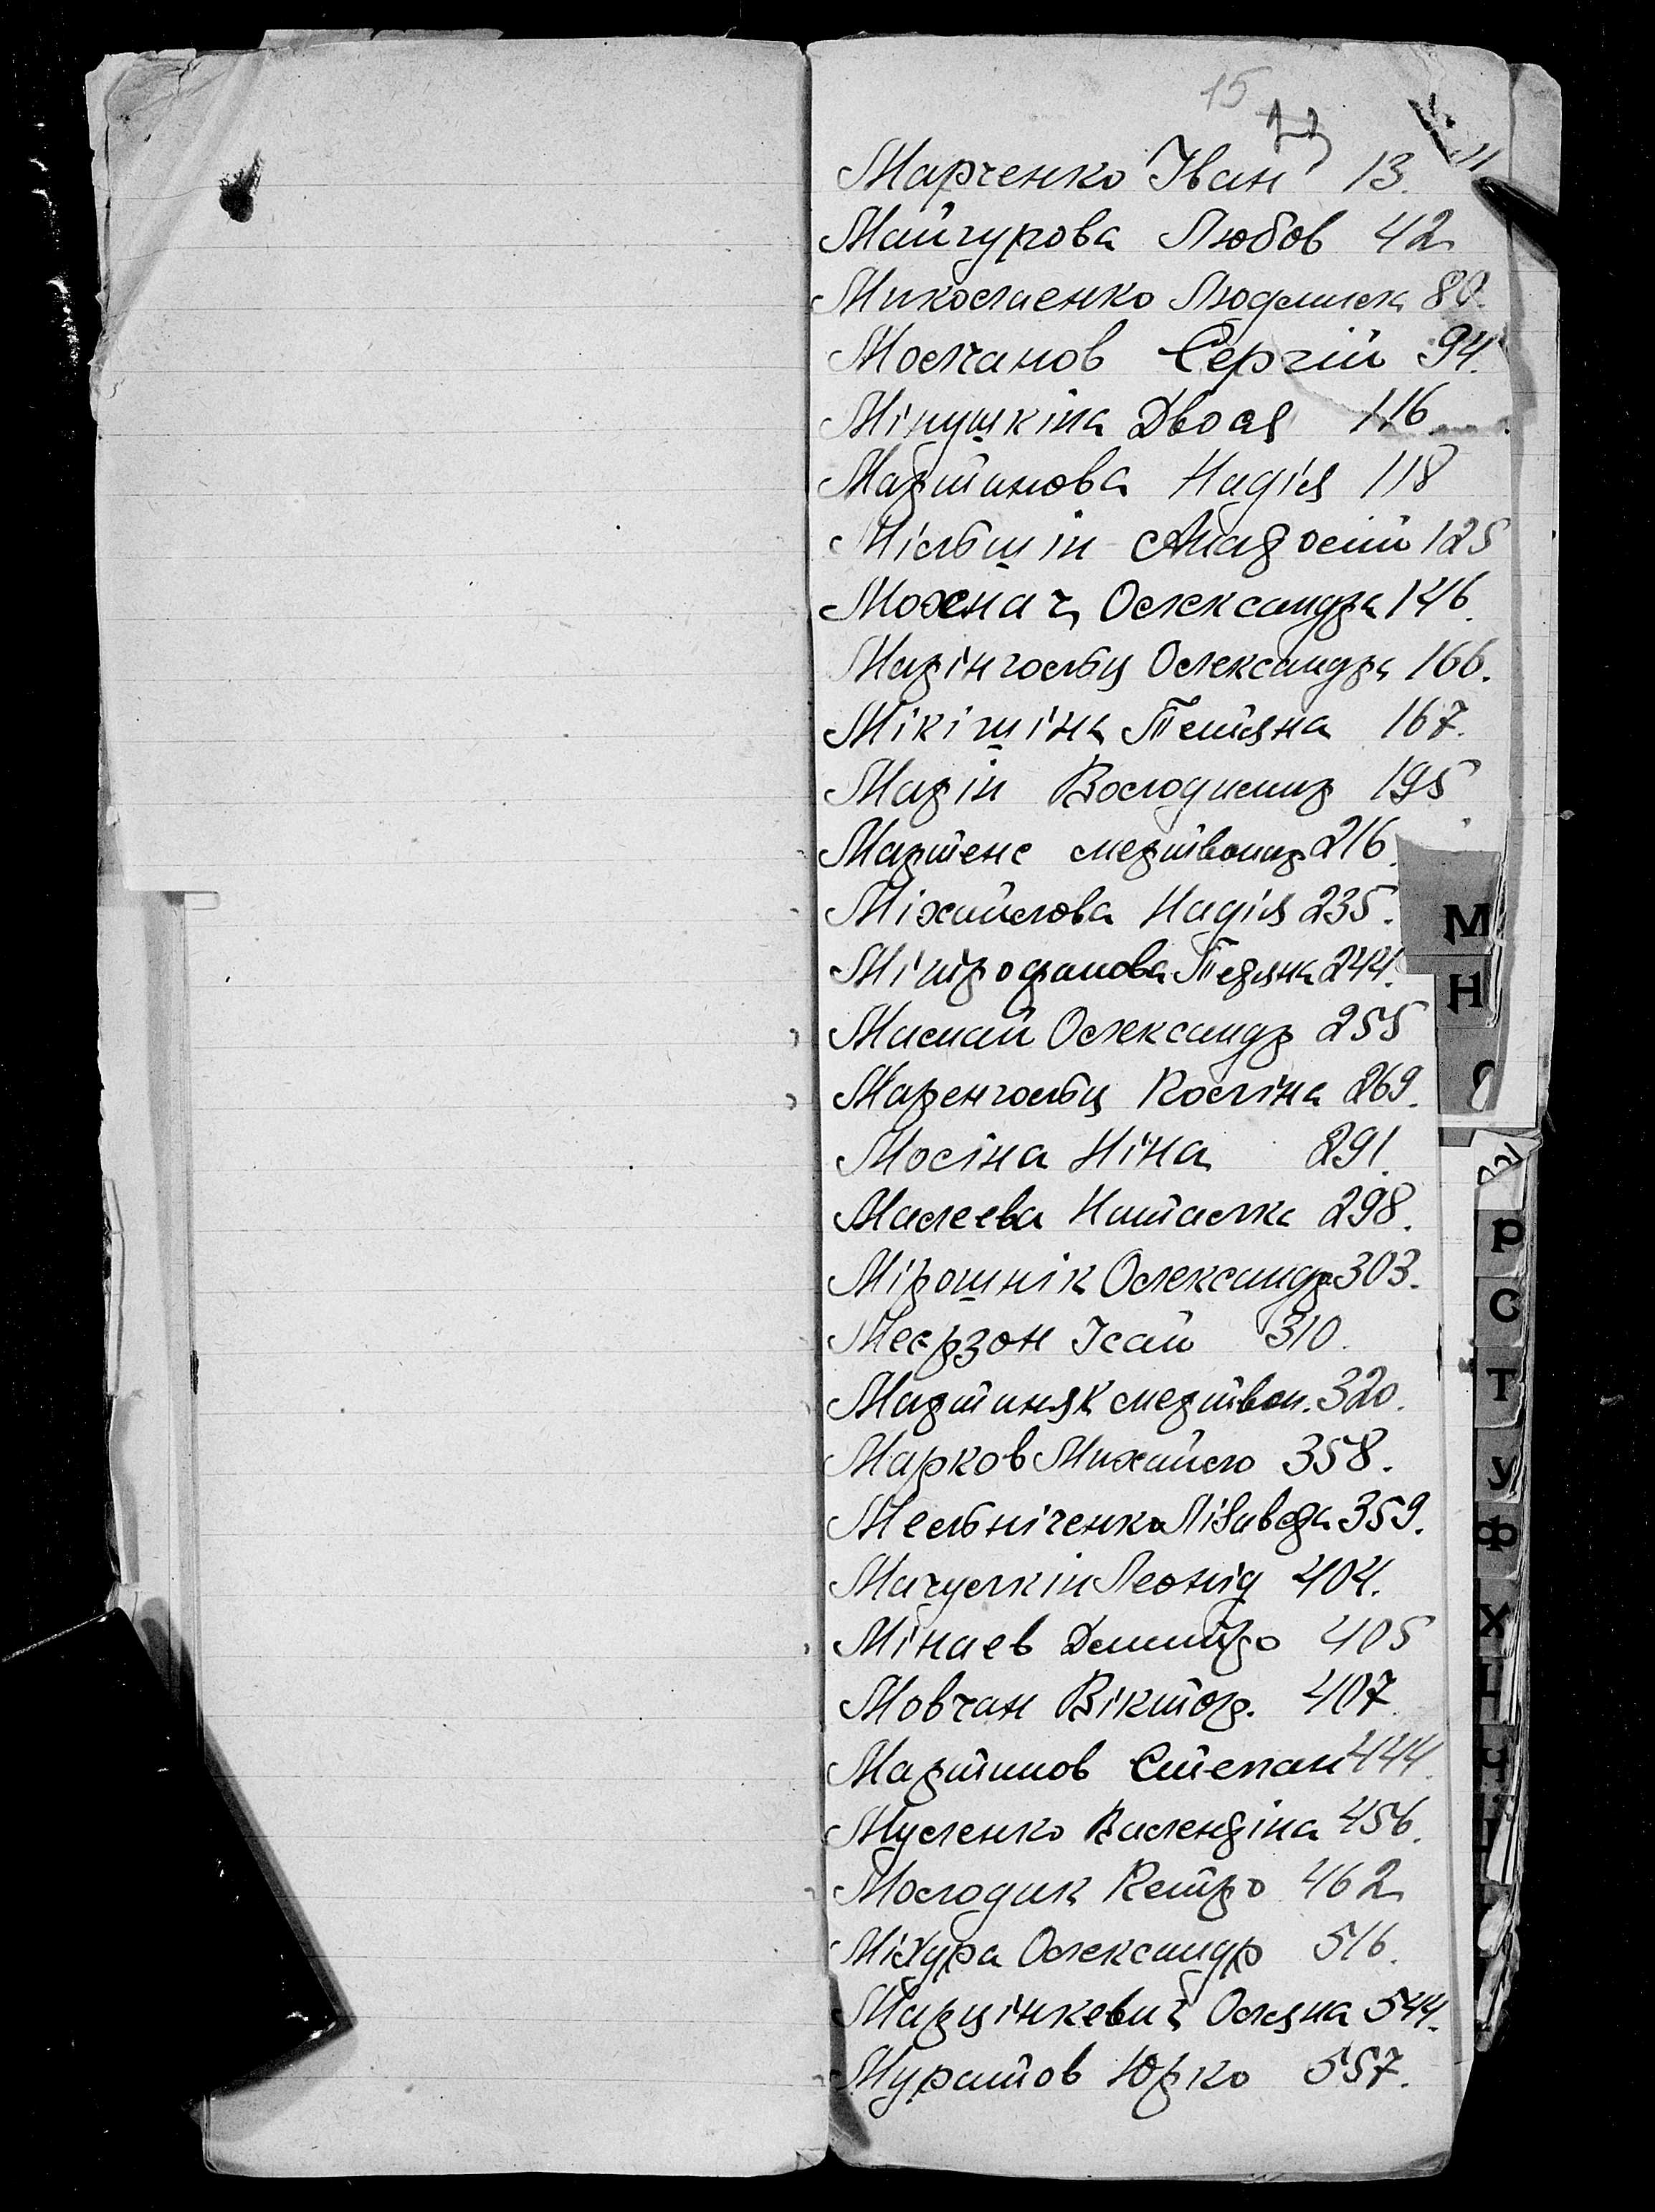 15
Марченко Іван 13.
Майгурова Любов 42
Миколаенко Людмила 80.
Молчанов Сергій 94.
Мінушкіна Двося 116
Мартинова Надія 118
Мільшін Анатолій 125
Мохнач Олександра 146.
Марінгольц Олександра 166.
Мікішіна Тетяна 167.
Марін Володимир 195
Мартенс мертвонар 216.
Міхайлова Надія 235.
Мітрофанова Тетяна 244.
Мамай Олександр 255
Маренгольц Поліна 269.
Мосіна Ніна 291.
Малеева Наталка 298.
Мірошнік Олександр 303.
Меерзон Ісай 310.
Мартиняк мертвон. 320.
Марков Михайло 358.
Мельніченко Лізавета 359.
Мачулкін Леонід 404.
Мінаев Дмитро 405
Мовчан Віктор. 407
Мартинов Степан 444.
Муленко Валентіна 456.
Молодик Петро 462
Міхура Олександр 516.
Марцінкевич Олена 544.
Муратов Юрко 557.
М
Н
Р
С
Т
У
Ф
Х